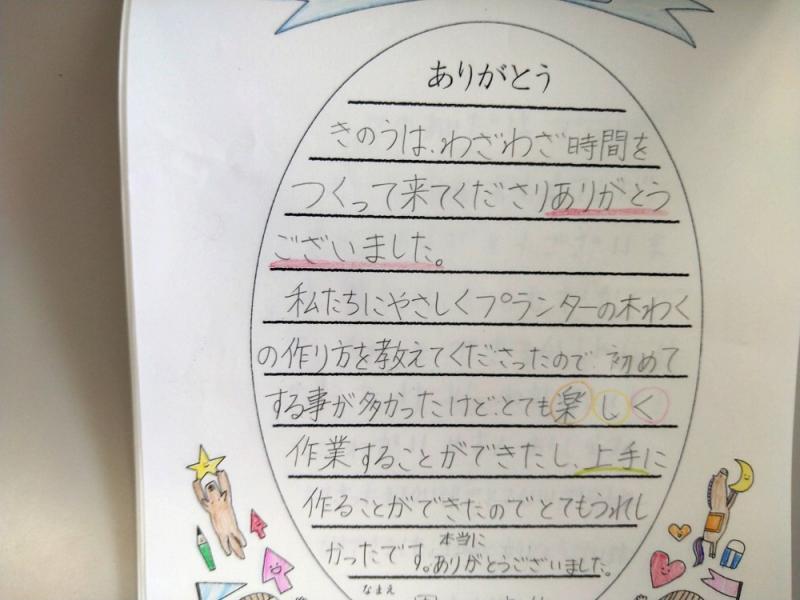 ありがとう
きのうは、わざわざ時間を
つくって来てくださりありがとう
ございました。
私たちにやさしくプランターの木わく
の作り方を教えてくださったので、初めて
する事が多かったけど、とても楽しく
作業することができたし、上手に
作ることができたのでとてもうれし
かったです。本当にありがとうございました。
なまえ